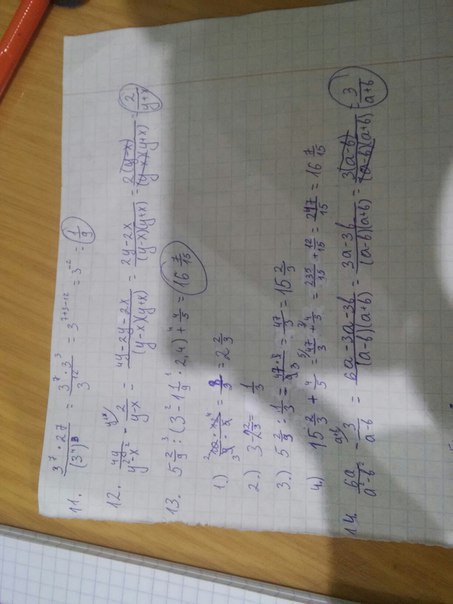 11. (3^7 · 27)/(3^4)^3 = (3^7 · 3^3)/3^12 = 3^(7+3-12) = 3^-2 = 1/9
12. 4y/(y^2-x^2) - 2/(y-x) = (4y-2y-2x)/((y-x)(y+x)) = (2y-2x)/((y-x)(y+x)) = 2(y-x)/((y-x)(y+x)) = 2/(y+x)
13. 5 2/9 : (3 - 1 1/9 · 2,4) + 4/5 = 16 7/15
1.) = 8/3 = 2 2/3
2.) 3-2 2/3 = 1/3
3.) 5 2/9 : 1/3 = (47 · 3)/9 = 47/3 = 15 2/3
4.) 15 2/3 + 4/5 = 47/3 + 4/5 = 235/15 + 12/15 = 247/15 = 16 7/15
14. 6a/(a^2-b^2) - 3/(a-b) = (6a-3a-3b)/((a-b)(a+b)) = (3a-3b)/((a-b)(a+b)) = 3(a-b)/((a-b)(a+b)) = 3/(a+b)